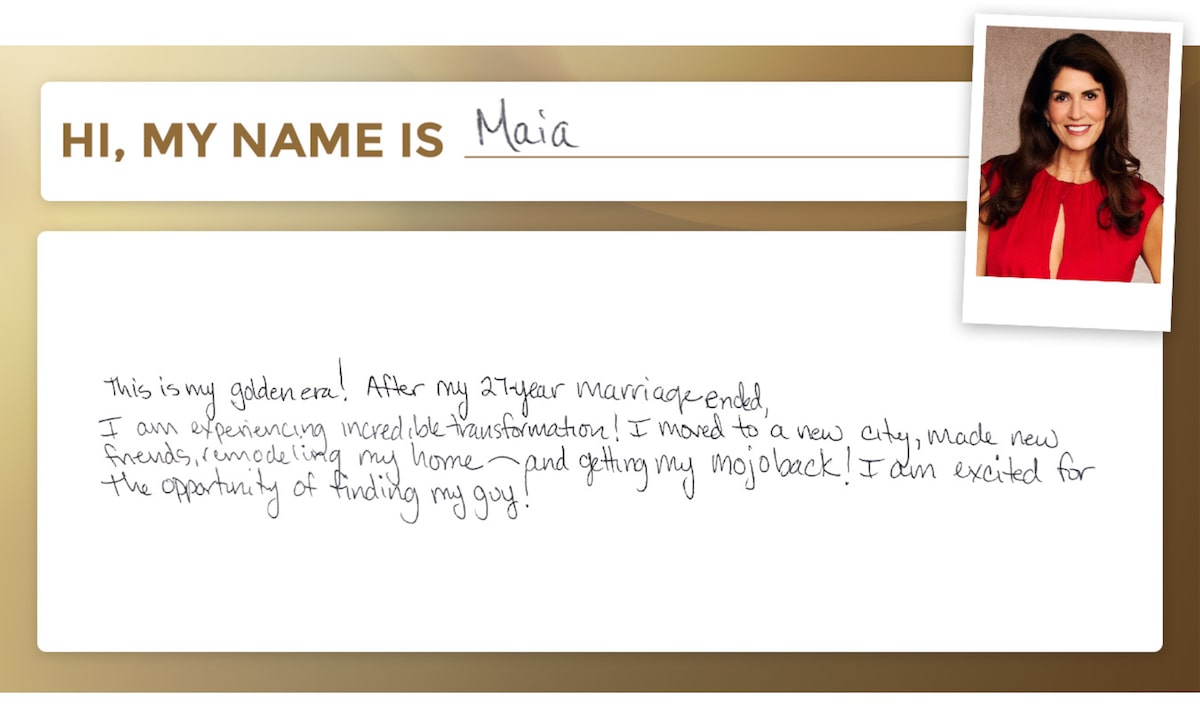 HI, MY NAME IS Maia
This is my golden era! After my 27-year marriage ended,
I am experiencing incredible transformation! I moved to a new city, made new
friends, remodeling my home — and getting my mojo back! I am excited for
the opportunity of finding my guy!